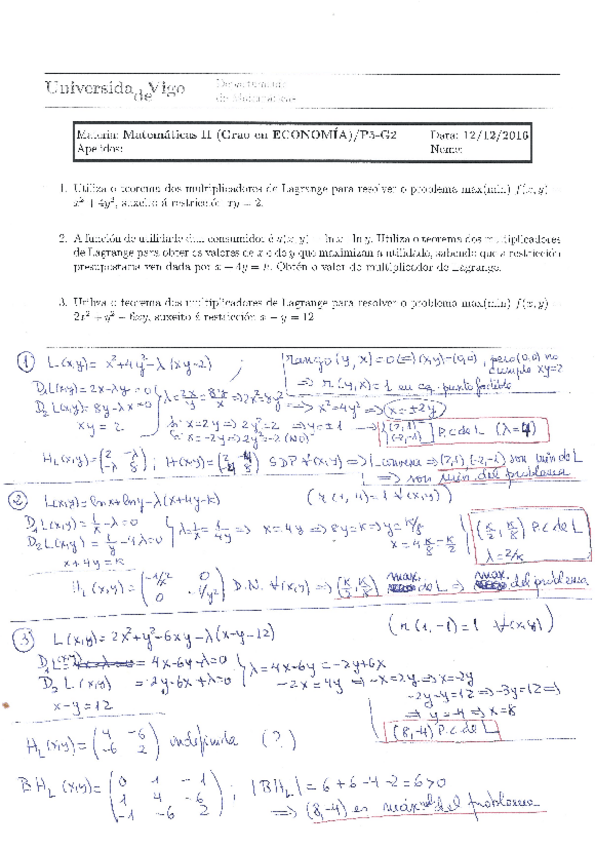 Universida de Vigo
Departamento de Matemáticas
Materia: Matemáticas II (Grao en ECONOMÍA)/P5-G2 Data: 12/12/2016
Apelidos: Nome:
1. Utiliza o teorema dos multiplicadores de Lagrange para resolver o problema max(min) f(x, y) =
x² + 4y², suxeito á restrición xy = 2.
2. A función de utilidade dun consumidor é u(x, y) = ln x + ln y. Utiliza o teorema dos multiplicadores
de Lagrange para obter os valores de x e de y que maximizan a utilidade, sabendo que a restricción
presupostaria ven dada por x + 4y = k. Obtén o valor do multiplicador de Lagrange.
3. Utiliza o teorema dos multiplicadores de Lagrange para resolver o problema max(min) f(x, y) =
2x² + y² − 6xy, suxeito á restricción x − y = 12
① L(x,y) = x²+4y²-λ(xy-2) ; rango(y, x)=0 ⇔ (x,y)=(0,0), pero (0,0) no cumple xy=2
⇒ r(y,x)=1 en cq. punto factible
D₁L(x,y)=2x-λy=0
D₂L(x,y)=8y-λx=0
xy = 2
λ=2x/y=8y/x ⇒ 2x²=8y² ⇒ x²=4y² ⇒ x=±2y
Si x=2y ⇒ 2y²=2 ⇒ y=±1 → (2,1) (-2,-1) P.C de L (λ=4)
Si x=-2y ⇒ -2y²=2 (NO)
H_L(x,y)=(2 -λ; -λ 8) ; H(x,y)=(2 -4; -4 8) SDP ∀(x,y) ⇒ L convexa ⇒ (2,1) (-2,-1) son min de L
⇒ son min del problema
② L(x,y)=lnx+lny-λ(x+4y-k) (r(1,4)=1 ∀(x,y))
D₁L(x,y)=1/x-λ=0
D₂L(x,y)=1/y-4λ=0
x+4y=k
λ=1/x=1/4y ⇒ x=4y ⇒ 8y=k ⇒ y=k/8
x=4k/8=k/2
(k/2, k/8) P.C de L
λ=2/k
H_L(x,y)=(-1/x² 0; 0 -1/y²) D.N. ∀(x,y) ⇒ (k/2, k/8) max. de L ⇒ max. del problema
③ L(x,y)=2x²+y²-6xy-λ(x-y-12) (r(1,-1)=1 ∀(x,y))
D₁L(x,y) = 4x-6y-λ=0
D₂L(x,y) = 2y-6x+λ=0
x-y=12
λ=4x-6y=-2y+6x
-2x=4y ⇒ -x=2y ⇒ x=-2y
-2y-y=12 ⇒ -3y=12 ⇒
⇒ y=-4 ⇒ x=8
(8,-4) P.C de L
H_L(x,y)=(4 -6; -6 2) indefinida (?)
BH_L(x,y)=(0 1 -1; 1 4 -6; -1 -6 2) ; |BH_L|=6+6-4-2=6>0
⇒ (8,-4) es máx del problema